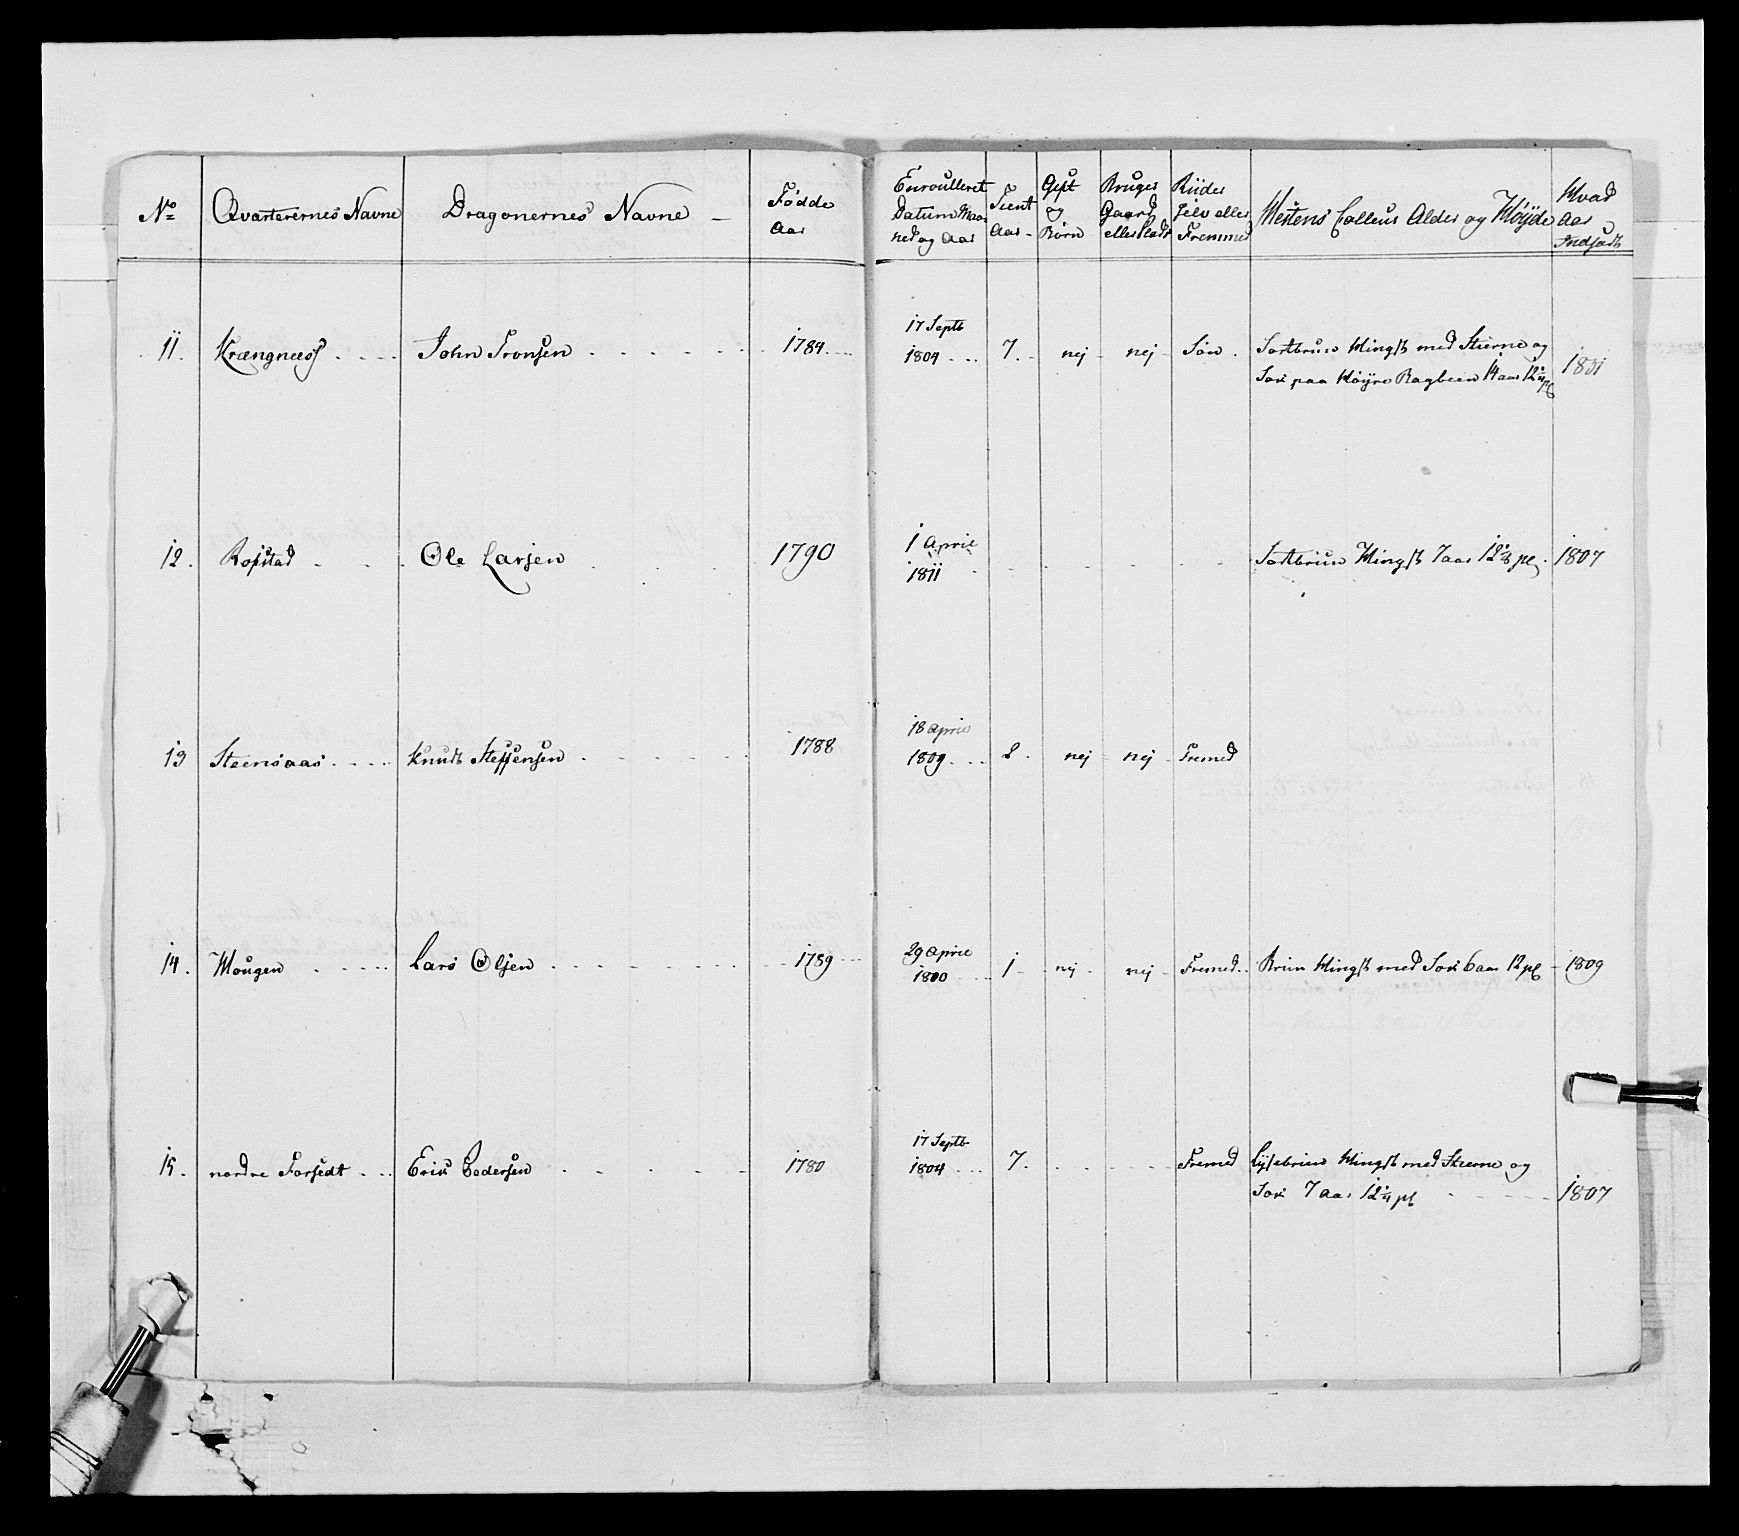 No Qvarterernes Navne Dragonernes Navne Fødde Aar Enroulleret Datum Maaned og Aar Tient Aar Gift og Børn Bruger Gaard eller Plads Riider Selv eller Fremmed Hestens Colleur Alder og Høyde Hvad Aar Indsadt
11. Krængness John Tronsen 1784 17 Septb 1804 7. nej nej Søn. Sortbrun Hingst med Stierne og
Sok paa Høyre Bagbeen 14 aar 12 1/4 pl 1801
12. Ropstad Ole Larsen 1790 1 April 1811 Sortbrun Hingst 7 aar 12 pl. 1807
13 Steensaas Knudt Steffensen 1788 18 April 1809 2. nej nej Fremed
14. Mougen Lars Olsen 1789 29 April 1810 1 nej nej Fremed Brun Hingst med Sok 6 aar 12 pl 1809
15. nordre Forsedt Erik Pedersen 1780 17 Septb 1804 7. Fremed Lysebrun Hingst med Stierne og
Sok 7 aar 12 1/4 pl 1807